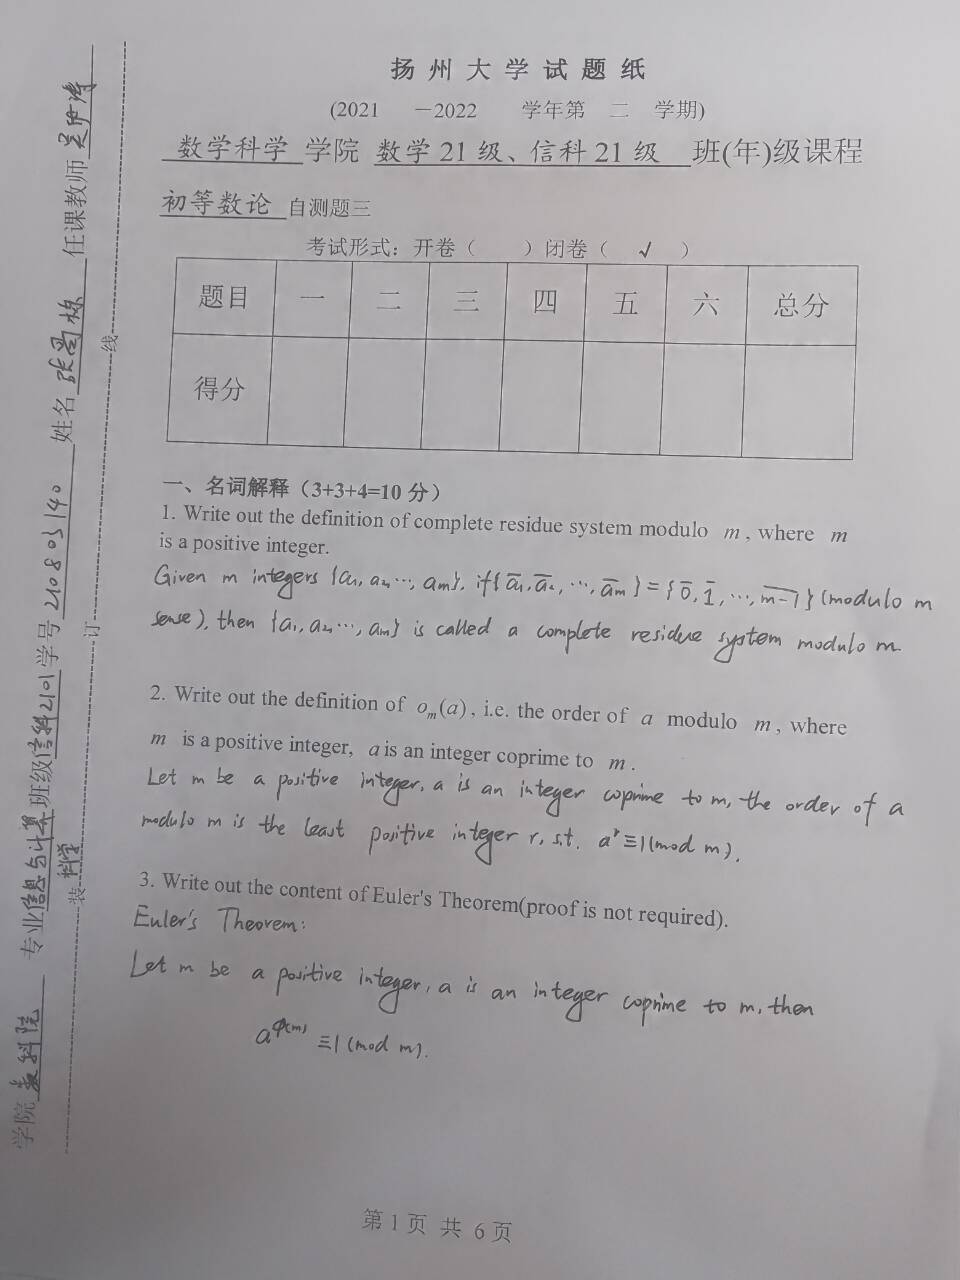 扬州大学试题纸
(2021 －2022 学年第 二 学期)
数学科学 学院 数学21级、信科21级 班(年)级课程
初等数论 自测题三
考试形式：开卷（ ）闭卷（ √ ）
题目 一 二 三 四 五 六 总分
得分
一、名词解释（3+3+4=10 分）
1. Write out the definition of complete residue system modulo m, where m
is a positive integer.
Given m integers {a₁, a₂, ⋯, aₘ}, if {a̅₁, a̅₂, ⋯, a̅ₘ} = {0̅, 1̅, ⋯, m-1̅} (modulo m
sense), then {a₁, a₂, ⋯, aₘ} is called a complete residue system modulo m.
2. Write out the definition of oₘ(a), i.e. the order of a modulo m, where
m is a positive integer, a is an integer coprime to m.
Let m be a positive integer, a is an integer coprime to m, the order of a
modulo m is the least positive integer r, s.t. aʳ≡1(mod m).
3. Write out the content of Euler's Theorem(proof is not required).
Euler's Theorem:
Let m be a positive integer, a is an integer coprime to m, then
a^φ(m) ≡1 (mod m).
第 1 页 共 6 页
学院 数科院 专业 信息与计算科学 班级 信科2101 学号 210803140 姓名 任课教师
装 订 线